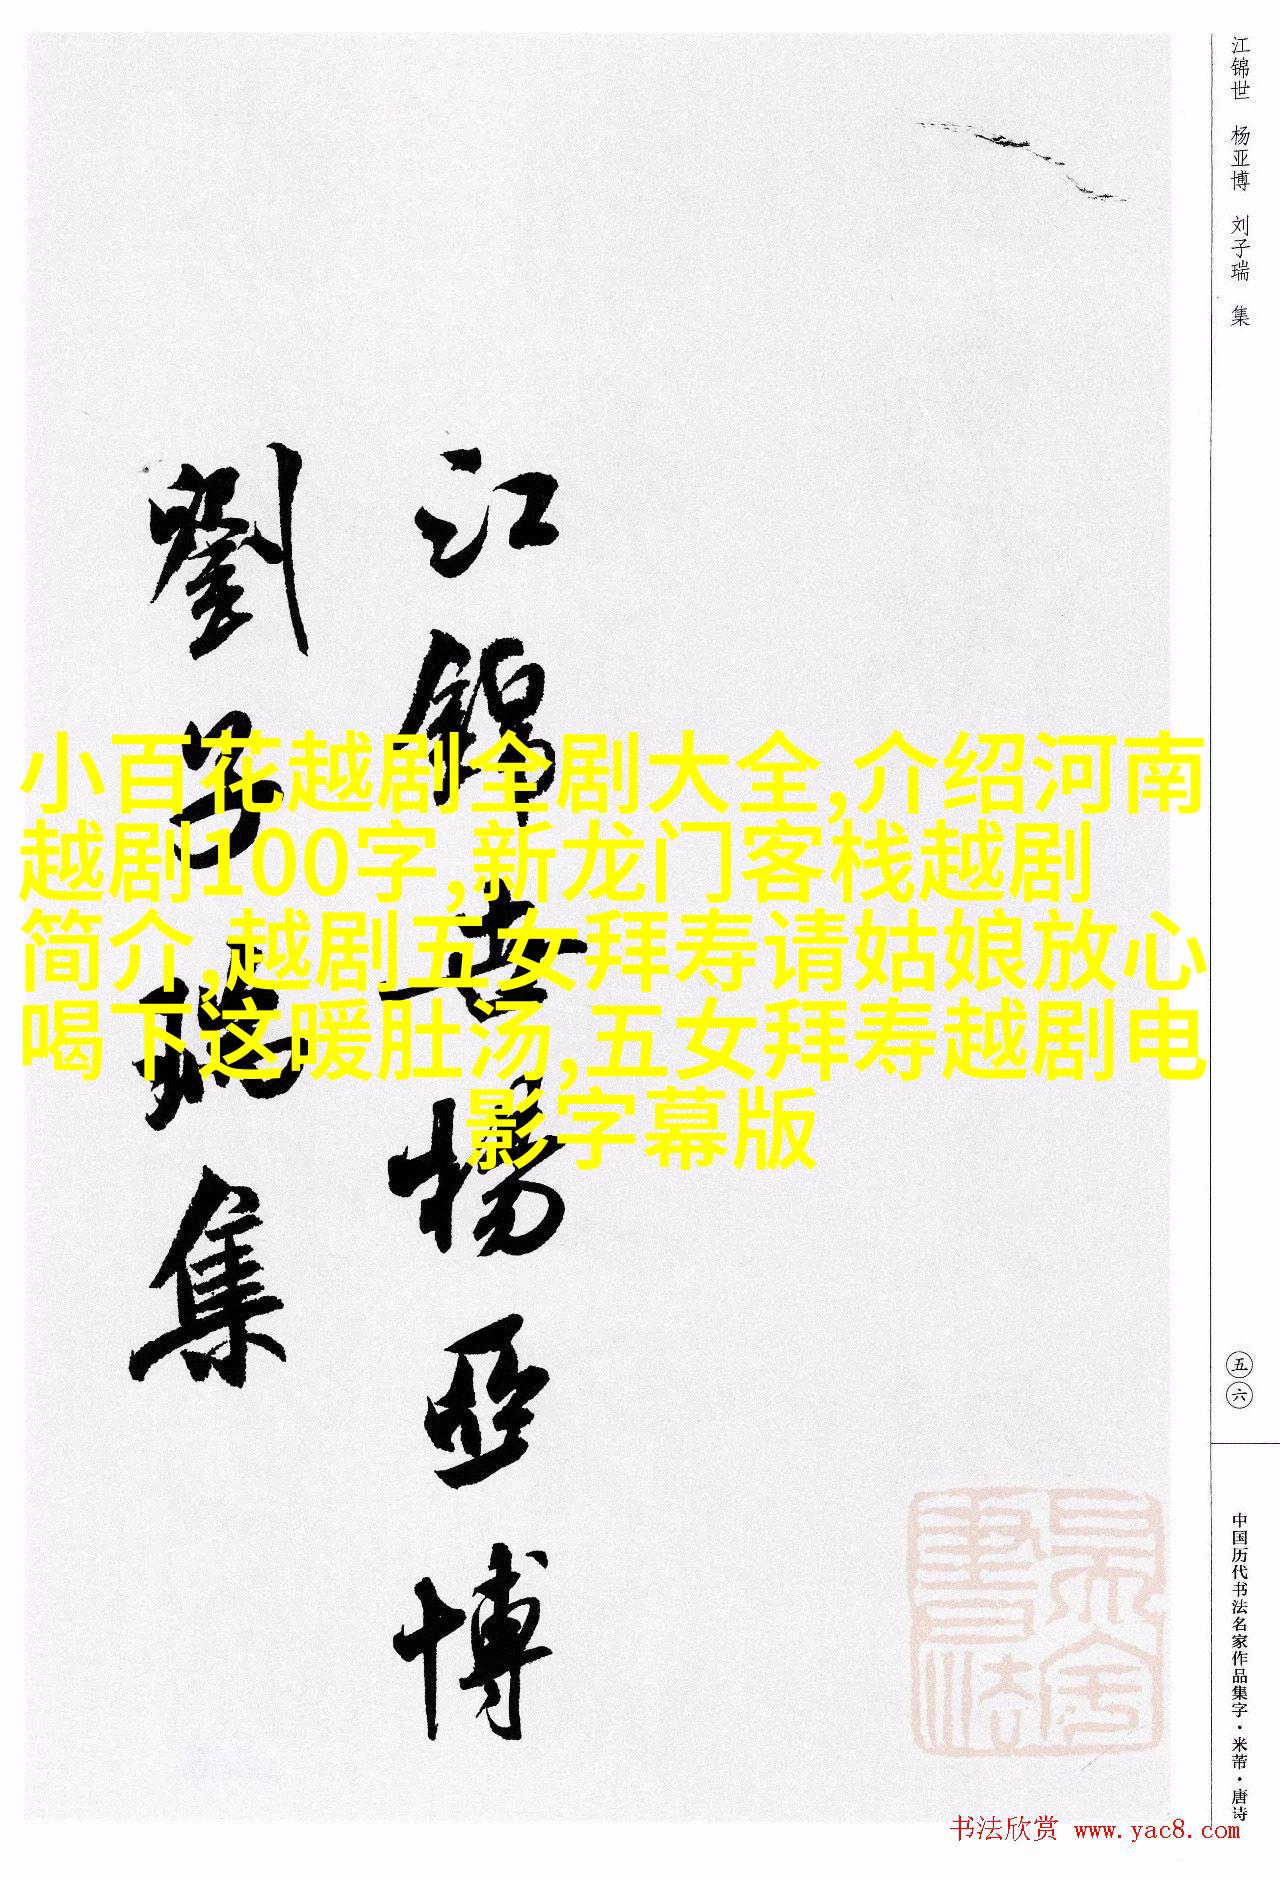 江锦世 杨亚博 刘子瑞 集
江锦世杨亚博
劉子瑞集
小百花越剧全剧大全,介绍河南
越剧100字,新龙门客栈越剧
简介,越剧五女拜寿请姑娘放心
喝下这暖肚汤,五女拜寿越剧电
影字幕版
五六
中国历代书法名家作品集字·米芾·唐诗
书法欣赏 www.yac8.com